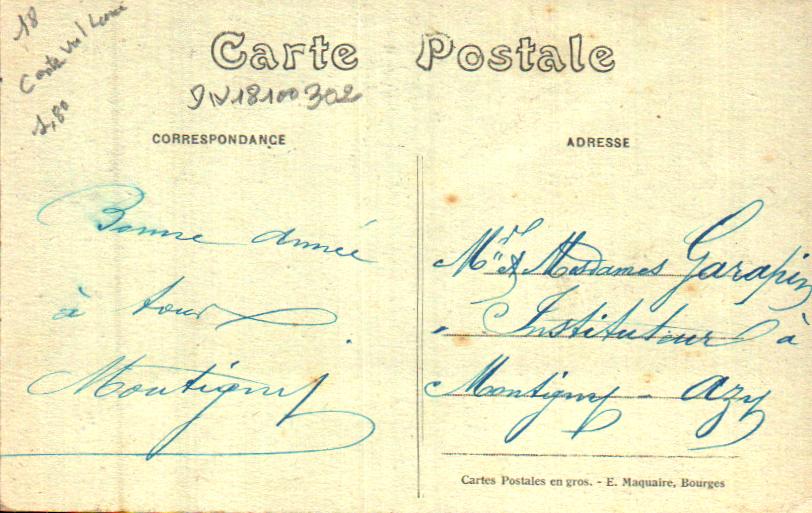 18
1,80
Carte Postale
9N18100302
CORRESPONDANCE
Bonne année
à tous
Montigny
ADRESSE
Mr et Mesdames Garapin
Instituteur à
Montigny - Azy
Cartes Postales en gros. - E. Maquaire, Bourges